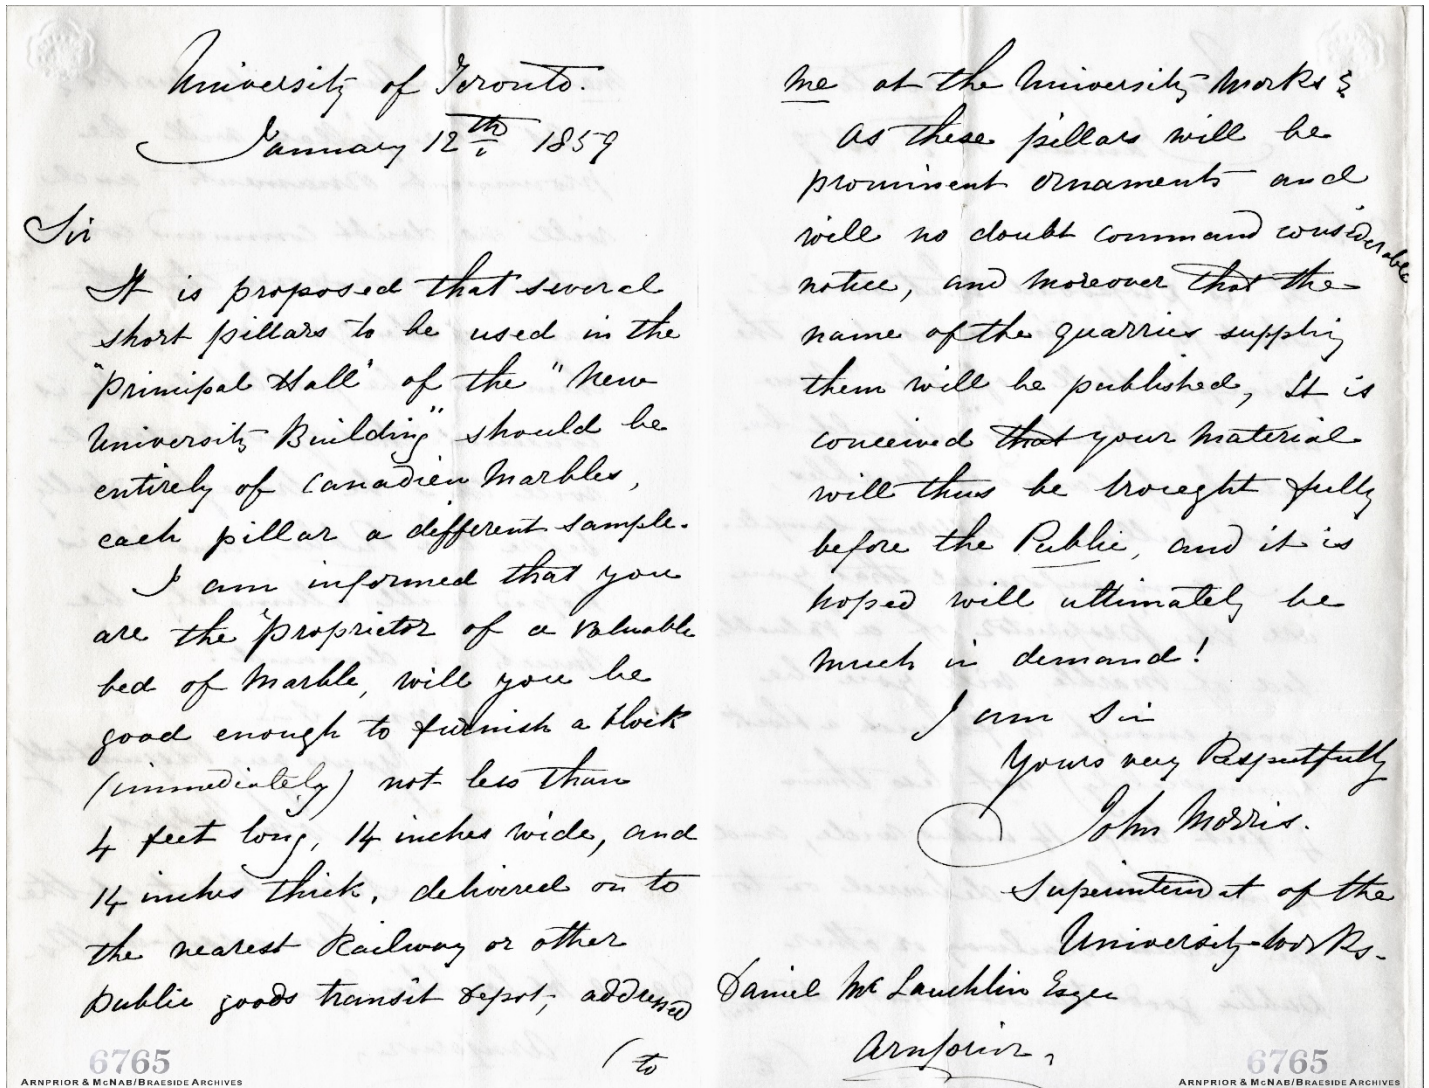 University of Toronto.
January 12th 1859
Sir
It is proposed that several
short pillars to be used in the
"Principal Hall" of the "New
University Building" should be
entirely of Canadien Marbles,
each pillar a different sample.
I am informed that you
are the Proprietor of a valuable
bed of Marble, will you be
good enough to furnish a block
(immediately) not less than
4 feet long, 14 inches wide, and
14 inches thick, delivered on to
the nearest Railway or other
public goods transit Depot, addressed
(to
6765
ARNPRIOR & MCNAB/BRAESIDE ARCHIVES
me at the University Works &
As these pillars will be
prominent ornaments and
will no doubt command considerable
notice, and moreover that the
name of the quarries supplig
them will be published, It is
conceived that your Material
will thus be brought fully
before the Public, and it is
hoped will ultimately be
much in demand!
I am Sir
Yours very Respectfully
John Morris.
Superintendent of the
University Works.
Daniel McLauchlin Esqer
Arnprior,
6765
ARNPRIOR & MCNAB/BRAESIDE ARCHIVES